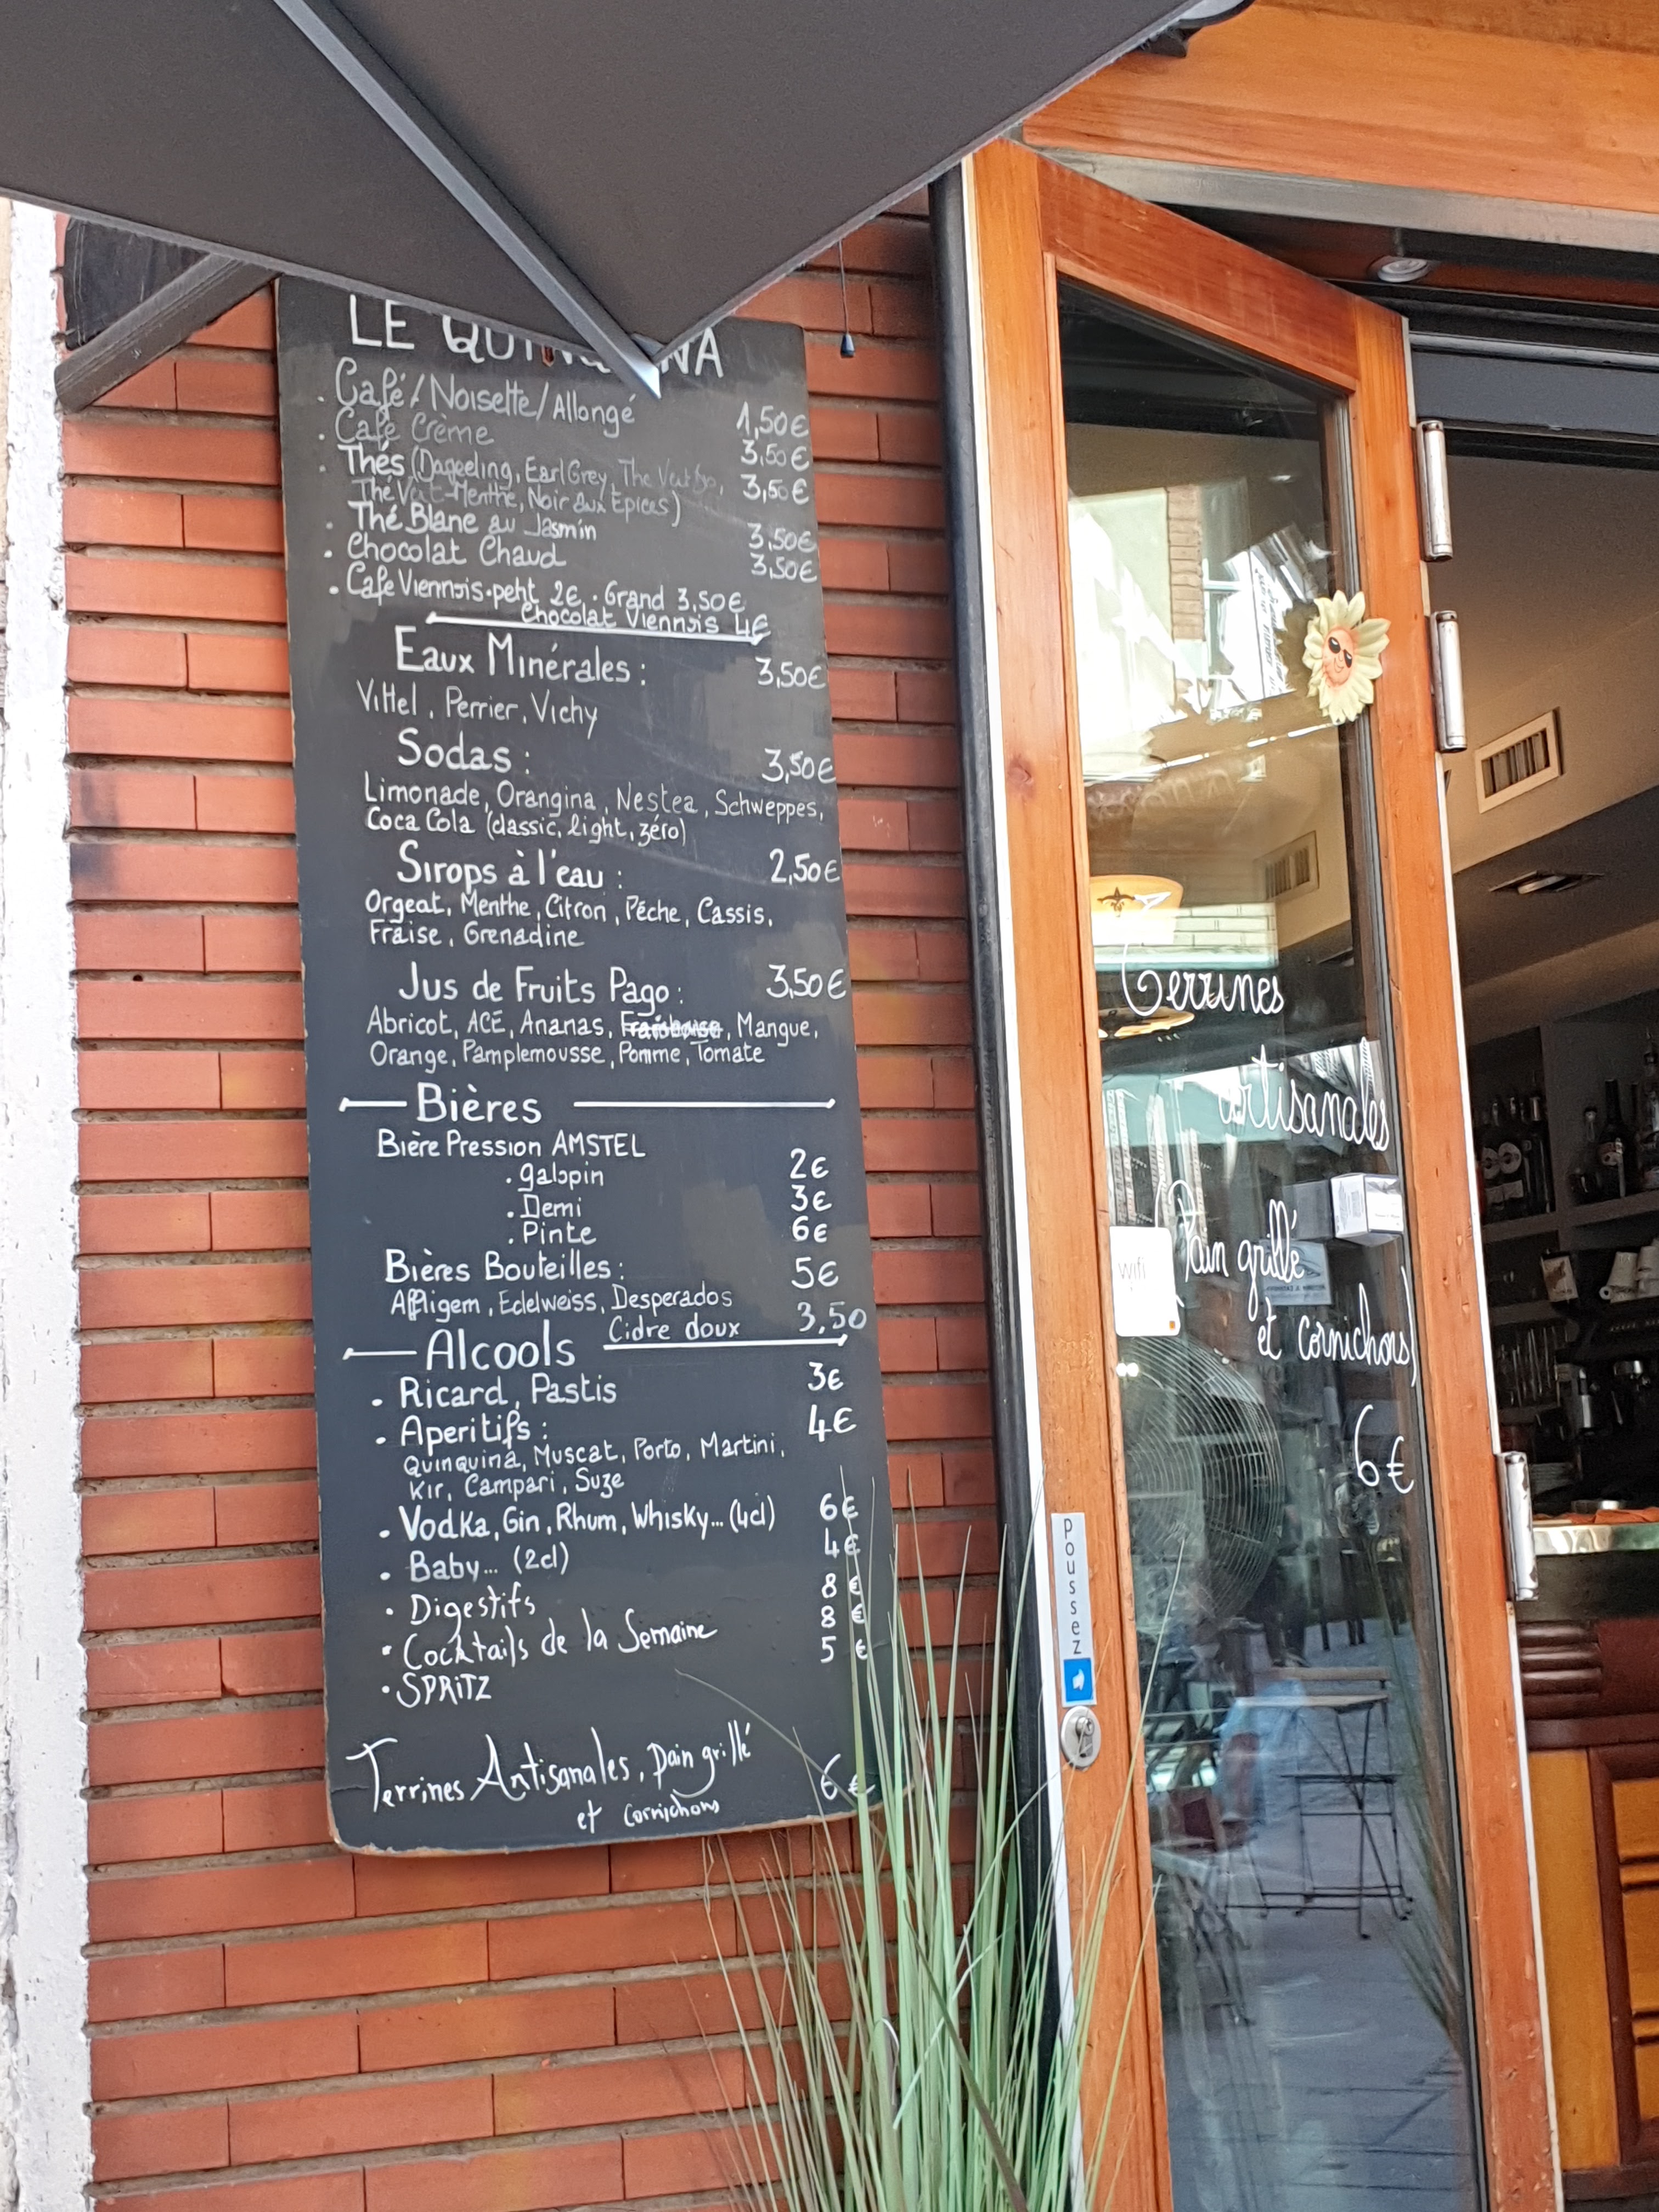 LE QUINQUINA
. Café / Noisette / Allongé 1,50€
. Café Crème 3,50€
. Thés (Darjeeling, Earl Grey, The Vert 3,50€
Thé Vert-Menthe, Noir aux Epices)
. Thé Blanc au Jasmin 3,50€
. Chocolat Chaud 3,50€
. Cafe Viennois . petit 2€ . Grand 3,50€
Chocolat Viennois 4€
Eaux Minérales : 3,50€
Vittel , Perrier , Vichy
Sodas : 3,50€
Limonade, Orangina , Nestea , Schweppes,
Coca Cola (classic, light, zéro)
Sirops à l'eau : 2,50€
Orgeat, Menthe, Citron , Pêche, Cassis,
Fraise , Grenadine
Jus de Fruits Pago : 3,50€
Abricot, ACE, Ananas, Framboise, Mangue,
Orange, Pamplemousse, Pomme, Tomate
Bières
Bière Pression AMSTEL
. galopin 2€
. Demi 3€
. Pinte 6€
Bières Bouteilles : 5€
Affligem , Edelweiss, Desperados
Cidre doux 3,50
Alcools
. Ricard, Pastis 3€
. Aperitifs : 4€
Quinquina, Muscat, Porto, Martini,
Kir, Campari, Suze
. Vodka, Gin, Rhum, Whisky... (4cl) 6€
. Baby... (2cl) 4€
. Digestifs 8€
. Cocktails de la Semaine 8€
. SPRITZ 5€
Terrines Artisanales, pain grillé
et cornichons 6€
Terrines
artisanales
(Pain grillé
et cornichons)
6€
wifi
poussez